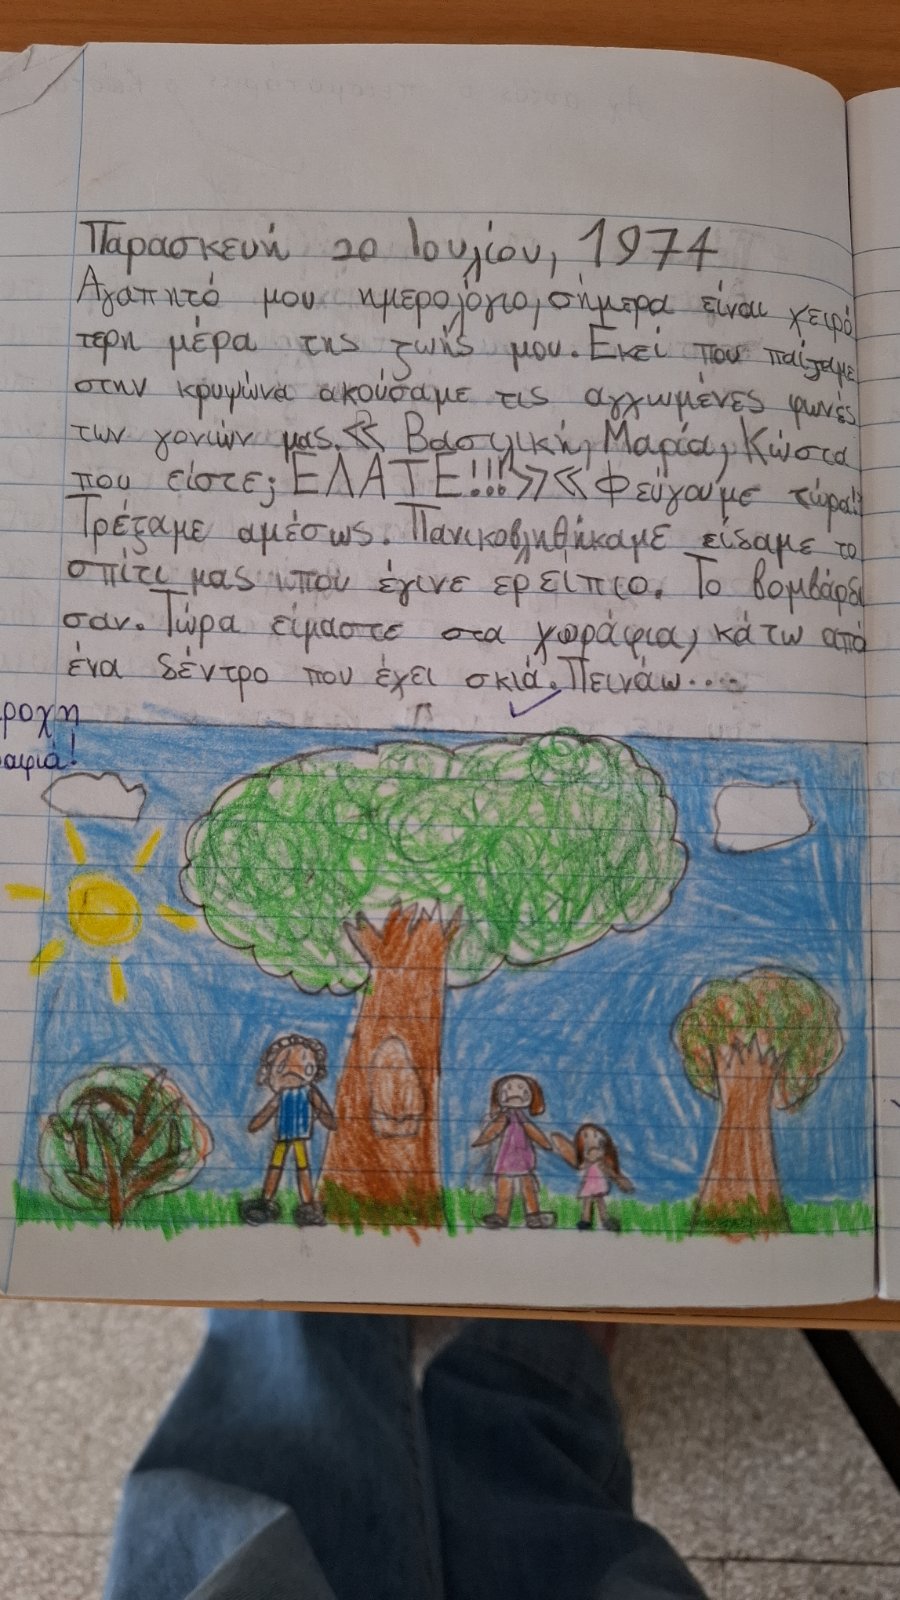 Παρασκευή 20 Ιουλίου, 1974
Αγαπητό μου ημερολόγιο, σήμερα είναι χειρό
τερη μέρα της ζωής μου. Εκεί που παίζαμε
στην κρυψώνα ακούσαμε τις αγχωμένες φωνές
των γονιών μας. << Βασιλική, Μαρία, Κώστα
που είστε; ΕΛΑΤΕ!!!>> << Φεύγουμε τώρα!>>
Τρέξαμε αμέσως. Πανικοβληθήκαμε είδαμε το
σπίτι μας που έγινε ερείπιο. Το βομβάρδι
σαν. Τώρα είμαστε στα χωράφια, κάτω από
ένα δέντρο που έχει σκιά. Πεινάω....
ροχη
αφιά!